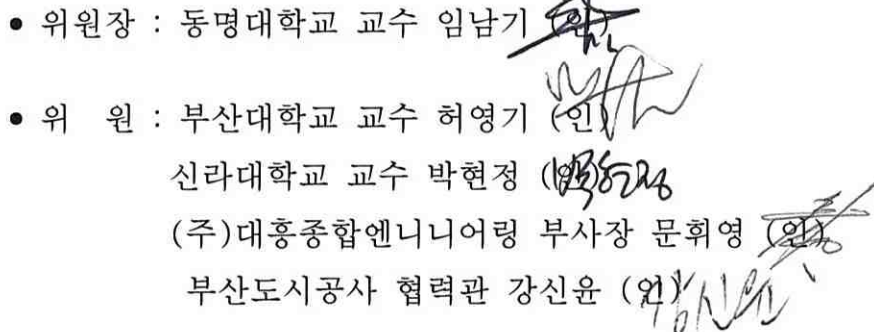 • 위원장 : 동명대학교 교수 임남기 (인)
• 위 원 : 부산대학교 교수 허영기 (인)
신라대학교 교수 박현정 (인) 박현정
(주)대흥종합엔니니어링 부사장 문휘영 (인)
부산도시공사 협력관 강신윤 (인) 강신윤